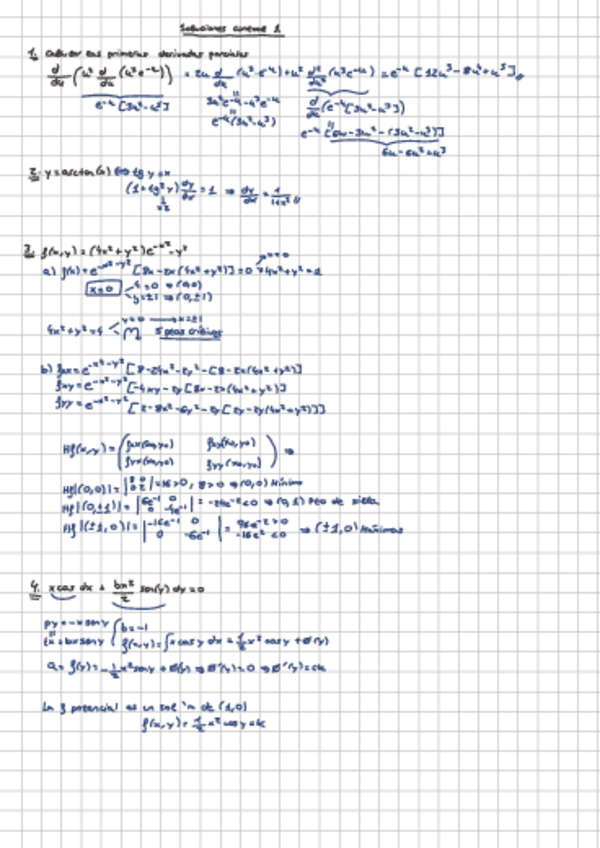 Soluciones control 1
1. Calcular las primeras derivadas parciales
d/du (u² d/du (u³e⁻ᵘ)) = 2u d/du (u³·e⁻ᵘ) + u² d²/du² (u³e⁻ᵘ) = e⁻ᵘ [12u³ - 8u⁴ + u⁵]
e⁻ᵘ [3u² - u³] 3u²e⁻ᵘ - u³e⁻ᵘ d/du (e⁻ᵘ[3u² - u³])
e⁻ᵘ(3u² - u³) e⁻ᵘ [6u - 3u² - (3u² - u³)]
6u - 6u² + u³
2. y = arctan(x) ⟺ tg y = x
(1 + tg² y) dy/dx = 1 ⇒ dy/dx = 1/(1+x²)
x²
3. f(x,y) = (4x² + y²) e^(-x² - y²)
a) f(x) = e^(-x² - y²) [8x - 2x(4x² + y²)] = 0 4x² + y² =
x = 0 y = 0 ⇒ (0,0)
y = ±1 ⇒ (0, ±1)
4x² + y² = 4 y = 0 → x = ±1
5 ptos críticos
b) fxx = e^(-x² - y²) [8 - 24x² - 2y² - [8 - 2x(4x² + y²)]
fxy = e^(-x² - y²) [-4xy - 2y [8x - 2x(4x² + y²)]
fyy = e^(-x² - y²) [2 - 8x² - 6y² - 2y [2y - 2y(4x² + y²)]]
Hf(x,y) = ( fxx(x₀,y₀) fxy(x₀,y₀)
fyx(x₀,y₀) fyy(x₀,y₀) ) ⇒
Hf|(0,0)| = |8 0 / 0 2| = 16 > 0, 8 > 0 ⇒ (0,0) Mínimo
Hf|(0,±1)| = |6e⁻¹ 0 / 0 -4e⁻¹| = -24e⁻² < 0 ⇒ (0,1) Pto de silla
Hf|(±1,0)| = |-16e⁻¹ 0 / 0 -6e⁻¹| = 96e⁻² > 0 / -16e² < 0 ⇒ (±1,0) Máximos
4. x cos dx + bx²/2 sen(y) dy = 0
py = -x sen y { b = -1
qx = bx sen y f(x,y) = ∫x cos y dx = 1/2 x² cos y + Ø(y)
Q = f(y) = -1/2 x² sen y + Ø(y) ⇒ Ø'(y) = 0 ⇒ Ø'(y) = ck
La f potencial es un de (1,0)
f(x,y) = 1/2 x² cos y = k